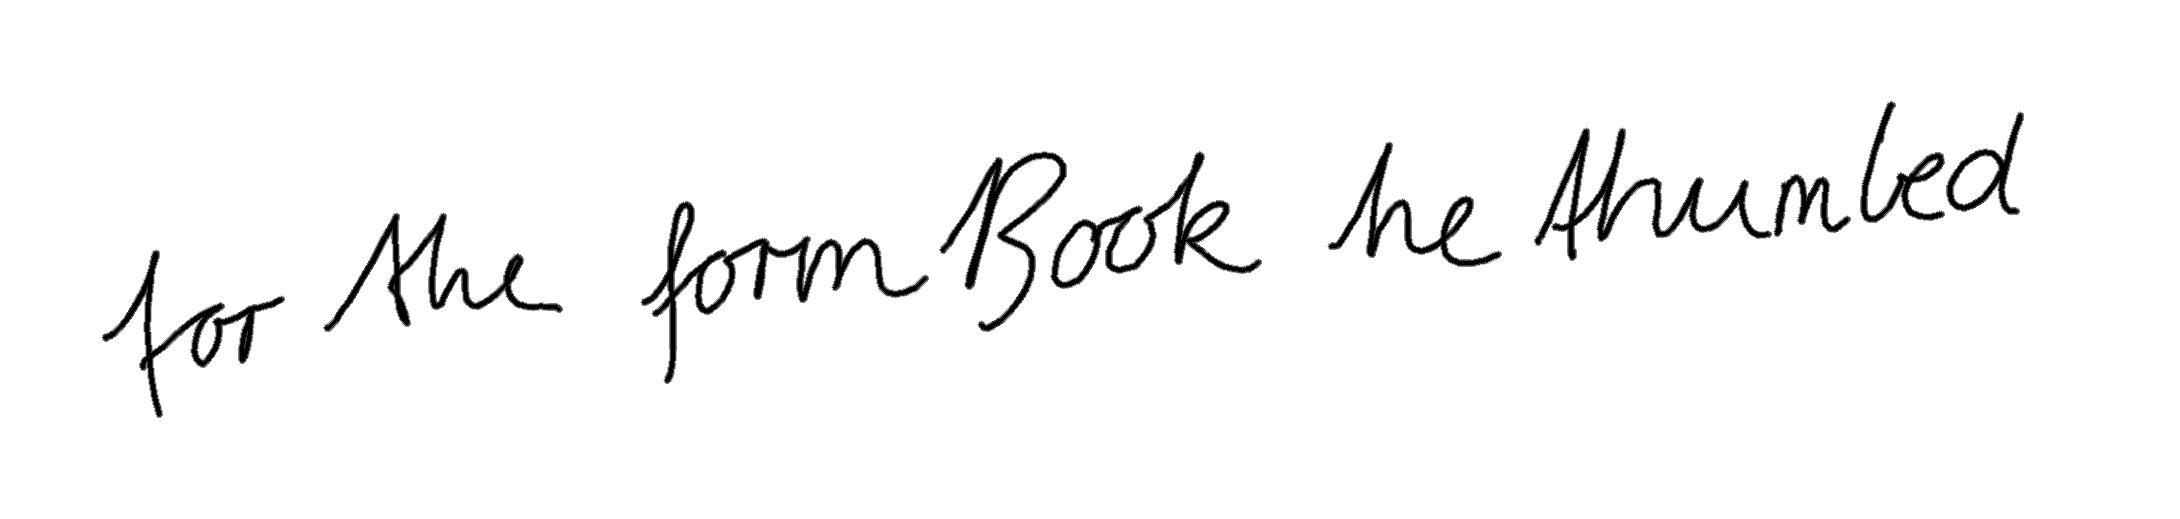 for the form Book he thumbed